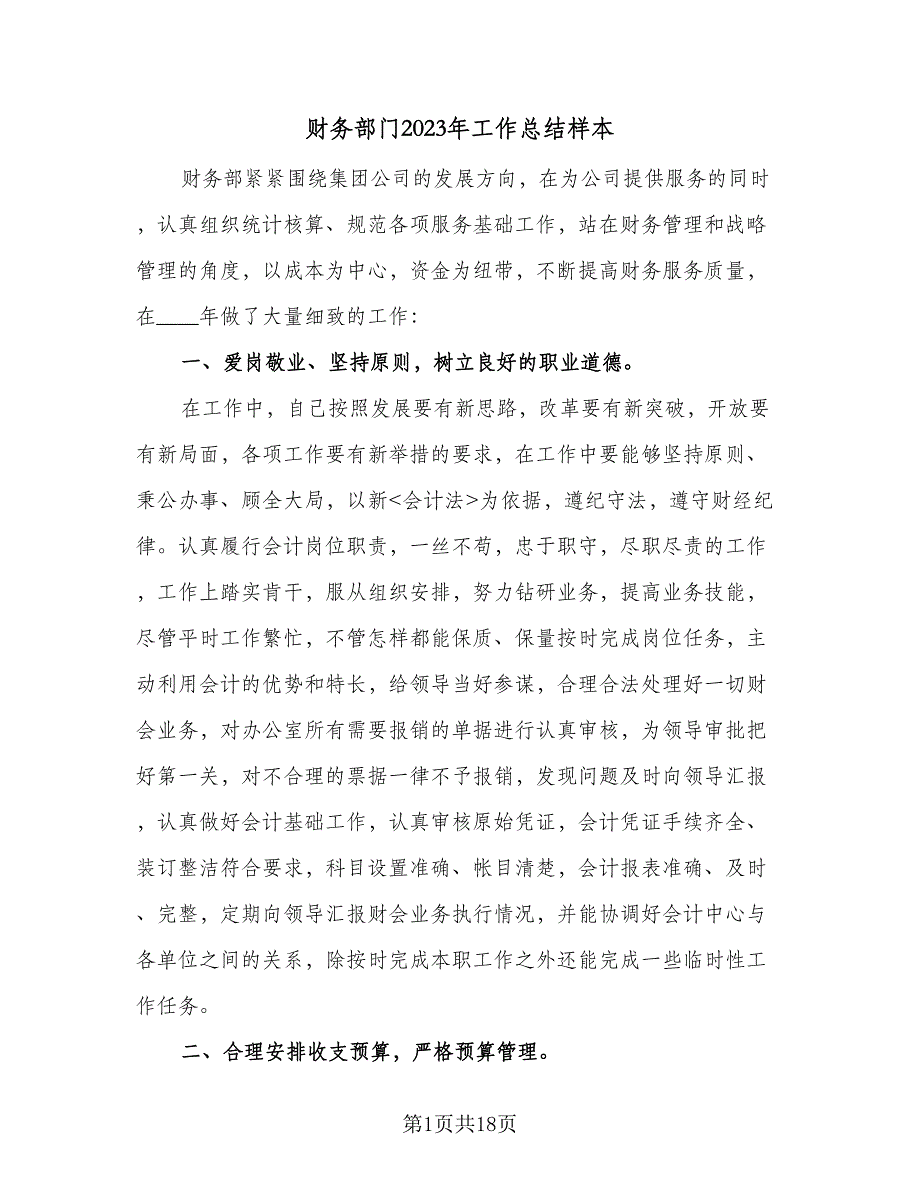 财务部门2023年工作总结样本
财务部紧紧围绕集团公司的发展方向，在为公司提供服务的同时
，认真组织统计核算、规范各项服务基础工作，站在财务管理和战略
管理的角度，以成本为中心，资金为纽带，不断提高财务服务质量，
在____年做了大量细致的工作：
一、爱岗敬业、坚持原则，树立良好的职业道德。
在工作中，自己按照发展要有新思路，改革要有新突破，开放要
有新局面，各项工作要有新举措的要求，在工作中要能够坚持原则、
秉公办事、顾全大局，以新<会计法>为依据，遵纪守法，遵守财经纪
律。认真履行会计岗位职责，一丝不苟，忠于职守，尽职尽责的工作
，工作上踏实肯干，服从组织安排，努力钻研业务，提高业务技能，
尽管平时工作繁忙，不管怎样都能保质、保量按时完成岗位任务，主
动利用会计的优势和特长，给领导当好参谋，合理合法处理好一切财
会业务，对办公室所有需要报销的单据进行认真审核，为领导审批把
好第一关，对不合理的票据一律不予报销，发现问题及时向领导汇报
，认真做好会计基础工作，认真审核原始凭证，会计凭证手续齐全、
装订整洁符合要求，科目设置准确、帐目清楚，会计报表准确、及时
、完整，定期向领导汇报财会业务执行情况，并能协调好会计中心与
各单位之间的关系，除按时完成本职工作之外还能完成一些临时性工
作任务。
二、合理安排收支预算，严格预算管理。
第1页共18页